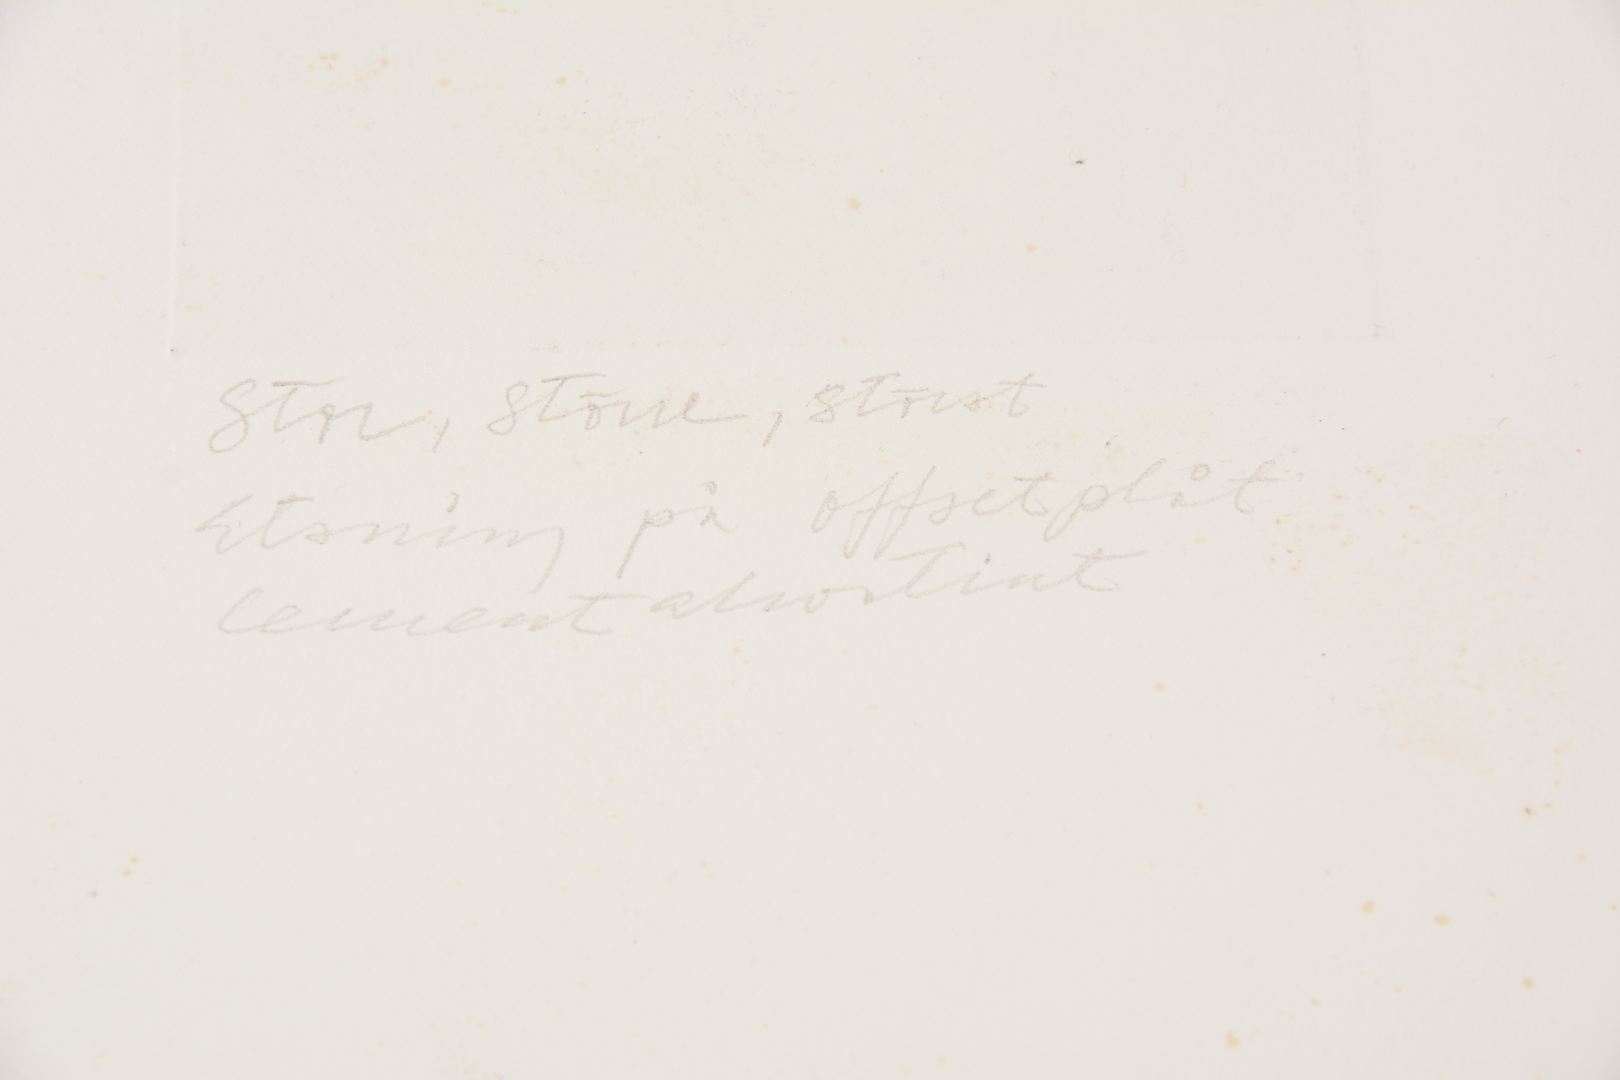 Stor, större, störst
Etsning på offsetplåt
cement akvatint